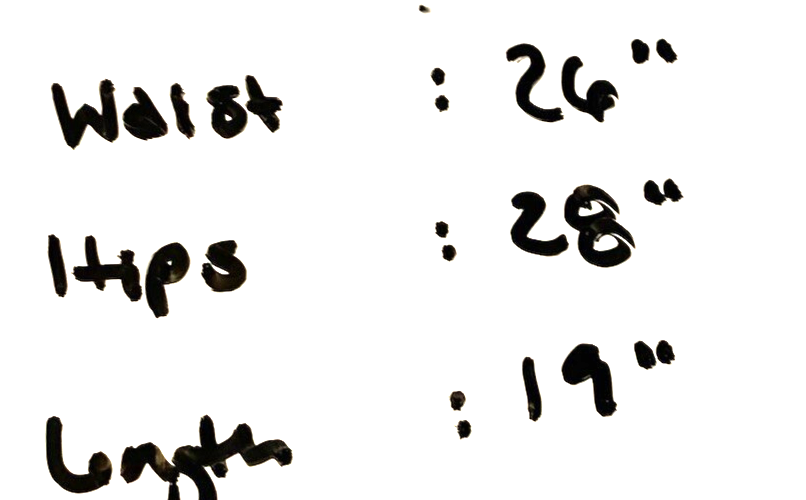 Waist : 26"
Hips : 28"
Length : 19"